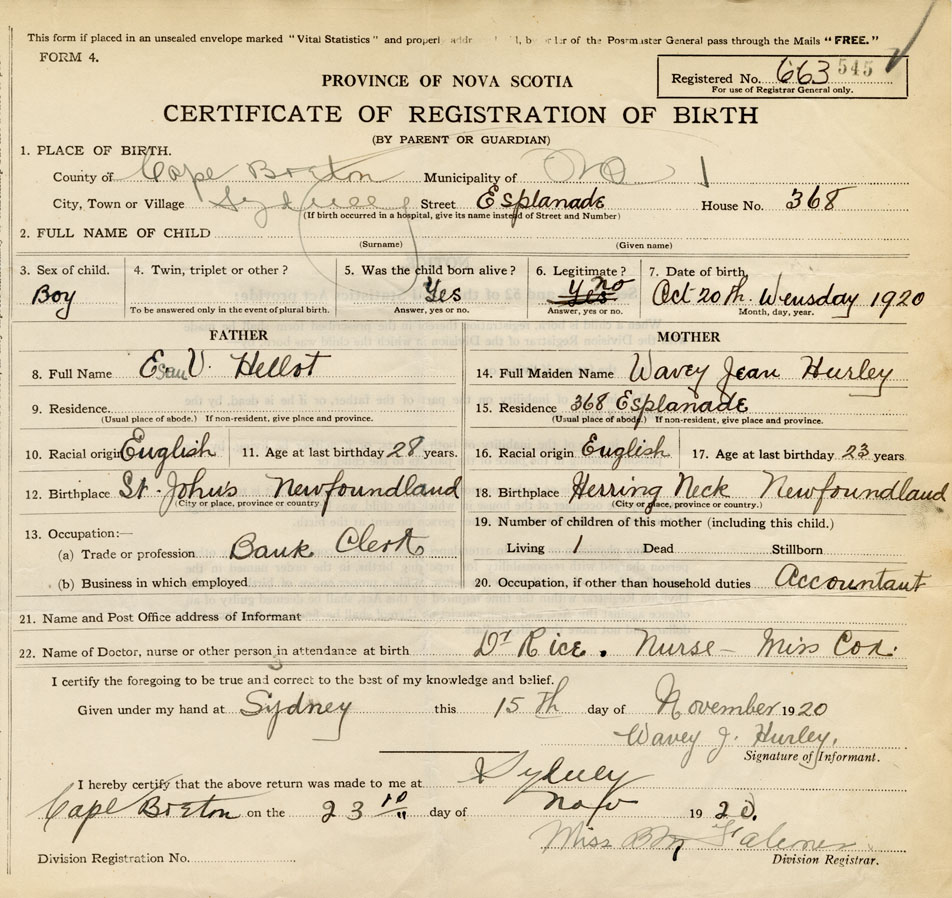 This form if placed in an unsealed envelope marked "Vital Statistics" and properly addr l, by r ler of the Postmaster General pass through the Mails "FREE."
FORM 4.
PROVINCE OF NOVA SCOTIA
Registered No. 663 545
For use of Registrar General only.
CERTIFICATE OF REGISTRATION OF BIRTH
(BY PARENT OR GUARDIAN)
1. PLACE OF BIRTH.
County of Cape Breton Municipality of
City, Town or Village Sydney Street Esplanade House No. 368
(If birth occurred in a hospital, give its name instead of Street and Number)
2. FULL NAME OF CHILD
(Surname) (Given name)
3. Sex of child. 4. Twin, triplet or other? 5. Was the child born alive? 6. Legitimate? 7. Date of birth
Boy Yes Yes no Oct 20th. Wensday 1920
To be answered only in the event of plural birth. Answer, yes or no. Answer, yes or no. Month, day, year.
FATHER MOTHER
8. Full Name Esau V. Hellot 14. Full Maiden Name Wavey Jean Hurley
9. Residence 15. Residence 368 Esplanade
(Usual place of abode.) If non-resident, give place and province. (Usual place of abode.) If non-resident, give place and province.
10. Racial origin English 11. Age at last birthday 28 years. 16. Racial origin English 17. Age at last birthday 23 years
12. Birthplace St. John's Newfoundland 18. Birthplace Herring Neck Newfoundland
(City or place, province or country) (City or place, province or country.)
13. Occupation:— 19. Number of children of this mother (including this child.)
(a) Trade or profession Bank Clerk Living 1 Dead Stillborn
(b) Business in which employed 20. Occupation, if other than household duties Accountant
21. Name and Post Office address of Informant
22. Name of Doctor, nurse or other person in attendance at birth Dr Rice. Nurse - Miss Cox.
I certify the foregoing to be true and correct to the best of my knowledge and belief.
Given under my hand at Sydney this 15th day of November 1920
Wavey J. Hurley.
Signature of Informant.
I hereby certify that the above return was made to me at Sydney
Cape Breton on the 23 day of Nov 1920.
Miss
Division Registration No. Division Registrar.